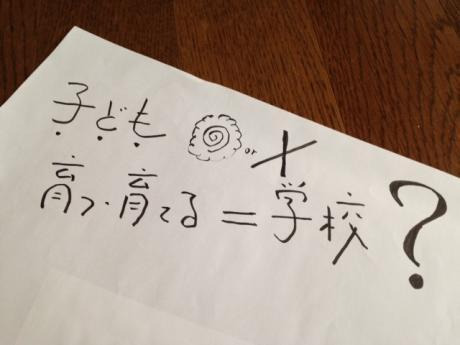 子ども or ×
育つ・育てる=学校?